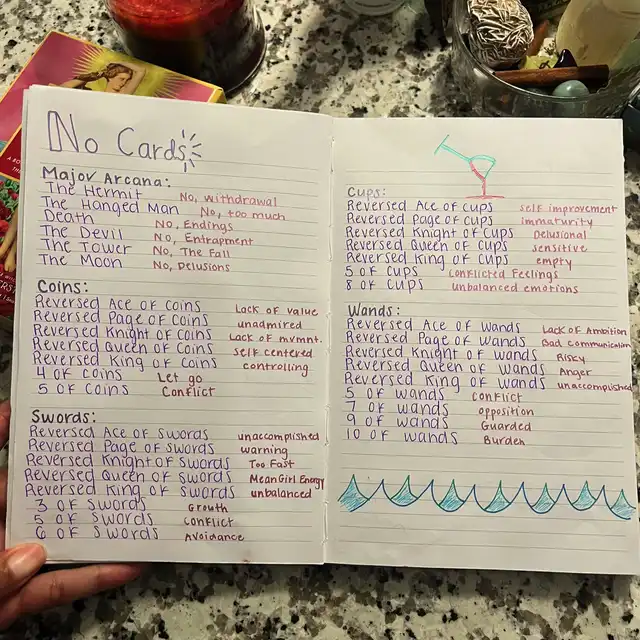 No Cards
Major Arcana:
The Hermit No, withdrawal
The Hanged Man No, too much
Death No, Endings
The Devil No, Entrapment
The Tower No, The Fall
The Moon No, Delusions
Coins:
Reversed Ace of Coins Lack of value
Reversed Page of Coins unadmired
Reversed Knight of Coins Lack of mvmnt.
Reversed Queen of Coins self centered
Reversed King of Coins controlling
4 of Coins Let go
5 of Coins Conflict
Swords:
Reversed Ace of Swords unaccomplished
Reversed Page of Swords warning
Reversed Knight of Swords Too Fast
Reversed Queen of Swords Mean Girl Energy
Reversed King of Swords unbalanced
3 of Swords Growth
5 of Swords Conflict
6 of Swords Avoidance
Cups:
Reversed Ace of Cups self improvement
Reversed Page of Cups immaturity
Reversed Knight of Cups Delusional
Reversed Queen of Cups sensitive
Reversed King of Cups empty
5 of Cups conflicted Feelings
8 of Cups unbalanced emotions
Wands:
Reversed Ace of Wands Lack of Ambition
Reversed Page of Wands Bad Communication
Reversed Knight of Wands Risky
Reversed Queen of Wands Anger
Reversed King of Wands unaccomplished
5 of Wands conflict
7 of Wands opposition
9 of Wands Guarded
10 of Wands Burden